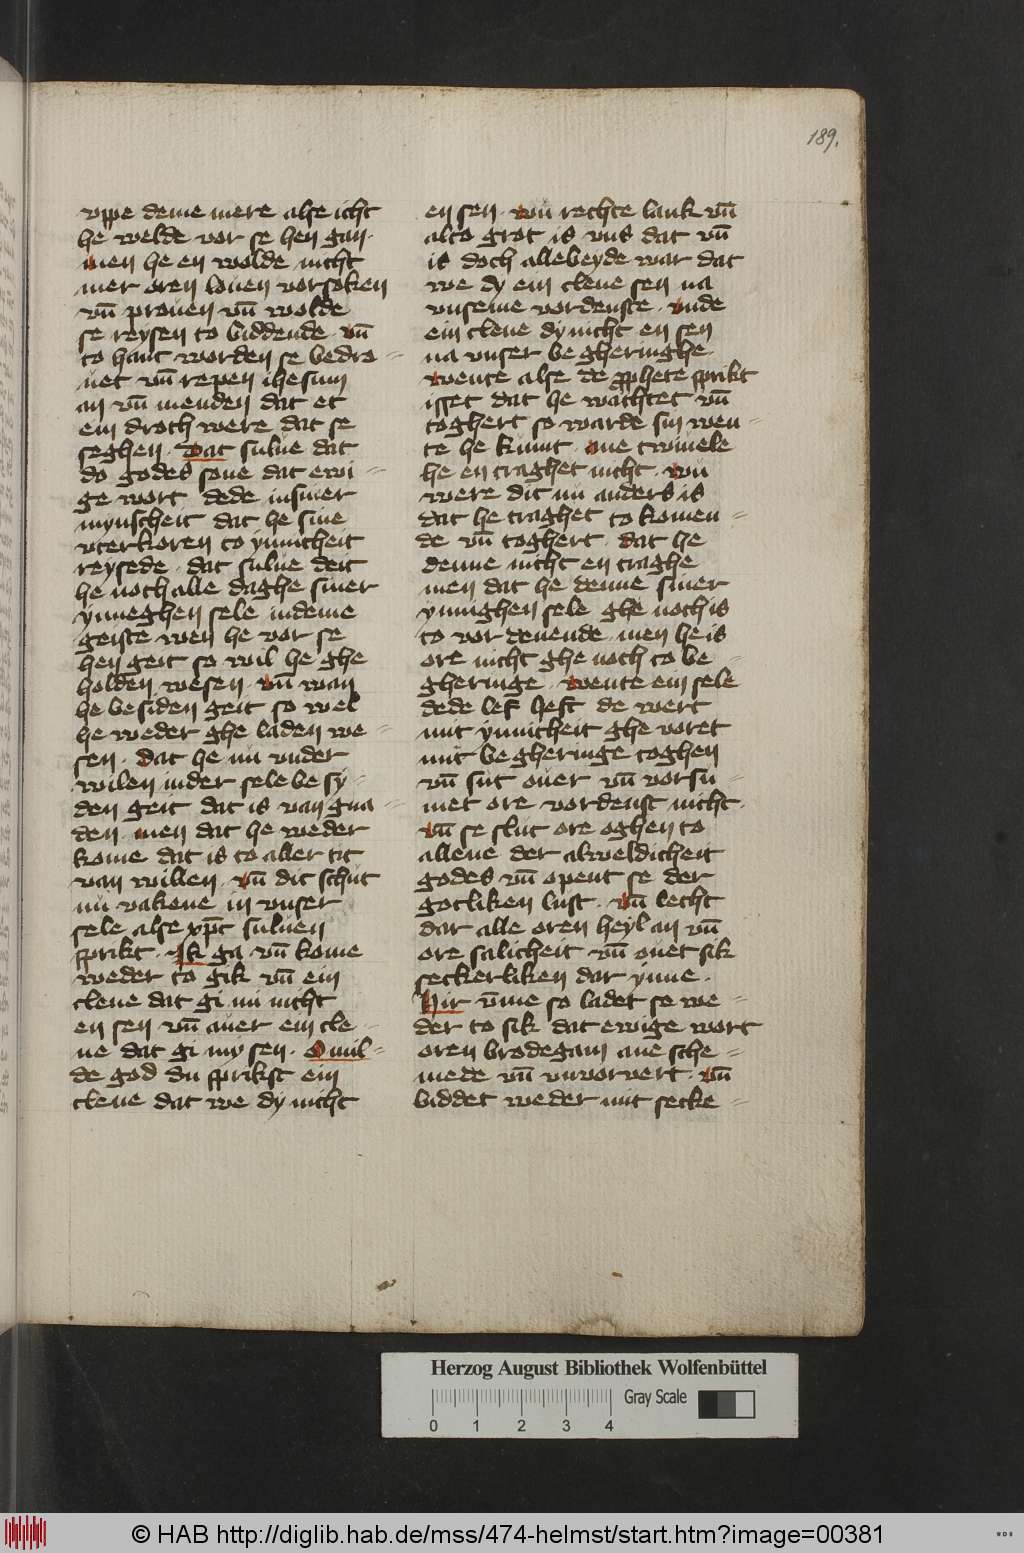 189.
vppe deme mere alse icht
he welde vor se hen gan·
men he en wolde nicht
mer oren louen vorsoken
vn̄ prouen vn̄ wolde
se reysen to biddende· vn̄
to hant worden se bedro-
uet vn̄ repen ihesum
an vn̄ menden dat et
ein droch were dat se
seghen· Dat sulue dat
do godes sone dat ewi-
ge wort dede in siner
mynscheit dat he sine
vterkoren to ynnicheit
reysede· dat sulue deit
he noch alle daghe siner
ynneghen sele in deme
geiste wen he vor se
hen geit so wil he ghe
holden wesen· vn̄ wan
he besiden geit so wel
he weder ghe laden we-
sen· dat he nu vnder
wilen in der sele be sy-
den geit dat is van gna-
den· men dat he weder
kome dat is to aller tit
van willen· vn̄ dit schut
nu vakene in vnser
sele alse xp̄c suluen
sprikt· Ik ga· vn̄ kome
weder to gik vn̄ ein
clene dat gi mi nicht
en sen vn̄ auer ein cle-
ne dat gi my sen· O mil-
de god du sprikst ein
clene dat we dy nicht
en sen· wu rechte lank vn̄
alto grot is vns dat vn̄
is doch alle beyde war dat
we dy ein clene sen na
vnseme vordenste· vnde
ein clene dy nicht en sen
na vnser be gheringhe·
wente alse de prophete sprikt
isset dat he wachtet vn̄
toghert so warde sin wen-
te he kumt· ane twiuele
he en traghet nicht· wu
were dit nu anders is
dat he traghet to komen-
de vn̄ toghert· dat he
denne nicht en traghe
men dat he denne siner
ynnighen sele ghe noch is
to vor denende· men he is
ore nicht ghe noch to be-
gheringe· wente ein sele
de de lef heft de wert
mit ynnicheit ghe voret
mit be gheringe toghen
vn̄ sut ouer vn̄ vorsu-
met ore vordenst nicht·
vn̄ se slut ore oghen to
allene der alweldicheit
godes vn̄ opent se der
gotliken lust· vn̄ lecht
dar alle oren heyl an vn̄
ore salicheit vn̄ ouet sik
seckerliken dar ynne·
Hir v̄me so ladet se we-
der to sik dat ewige wort
oren brodegam ane sche-
mede vn̄ vnvorvert· vn̄
biddet weder mit secke-
Herzog August Bibliothek Wolfenbüttel
0 1 2 3 4
Gray Scale
© HAB http://diglib.hab.de/mss/474-helmst/start.htm?image=00381